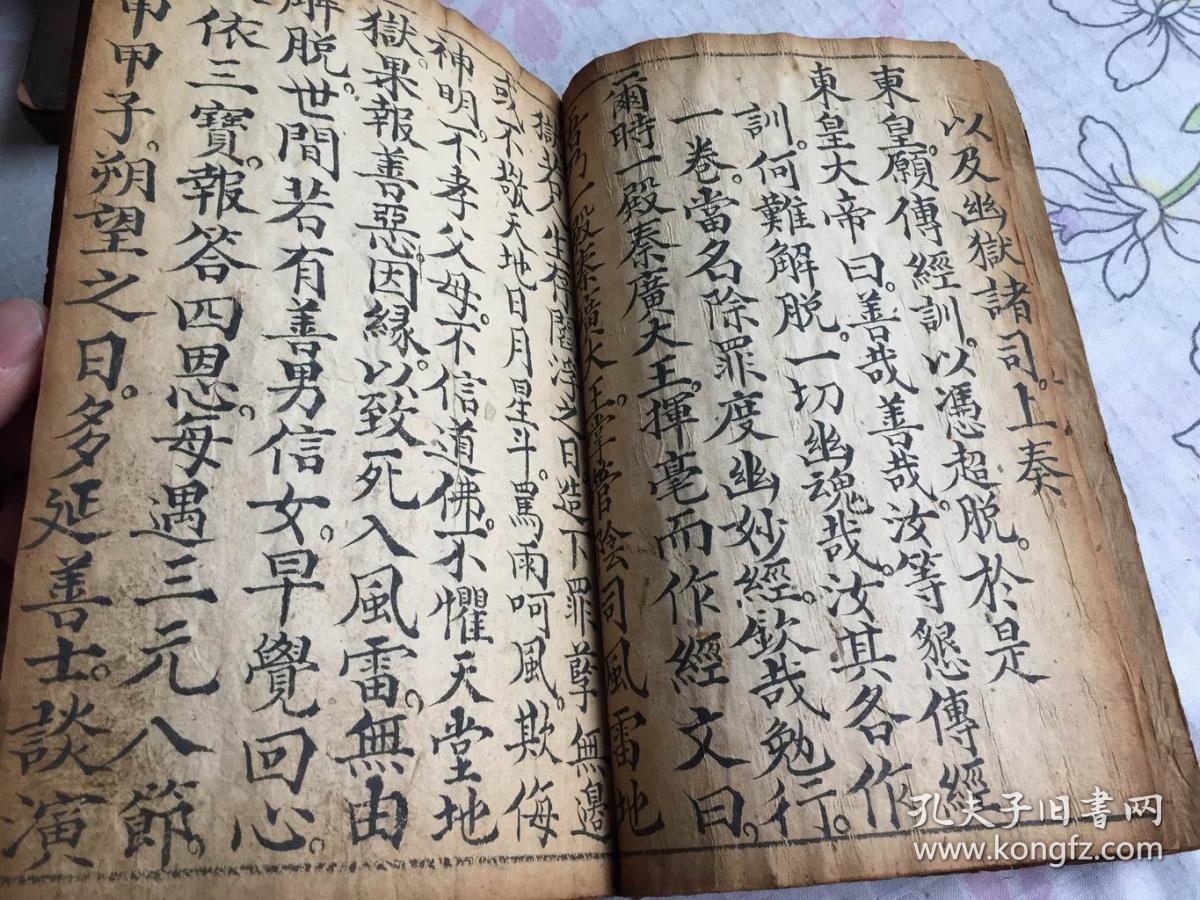 以及幽獄諸司。上奏
東皇。願傳經訓。以憑超脫。於是
東皇大帝曰。善哉善哉。汝等懇傳經
訓。何難解脫。一切幽魂哉。汝其各作
一卷。當名除罪度幽妙經。欽哉勉行。
爾時一殿秦廣大王。揮毫而作經文曰。
吾乃一殿秦廣大王掌管陰司風雷地
獄若人生有閻浮之日造下罪孽無邊
或不敬天地日月星斗。罵雨呵風。欺侮
神明。不孝父母。不信道佛。不懼天堂地
獄。果報善惡。因緣。以致死入風雷。無由
解脫。世間若有善男信女。早覺回心。
依三寶。報答四恩。每遇三元八節。
甲甲子朔望之日。多延善士。談演
孔夫子旧书网
www.kongfz.com